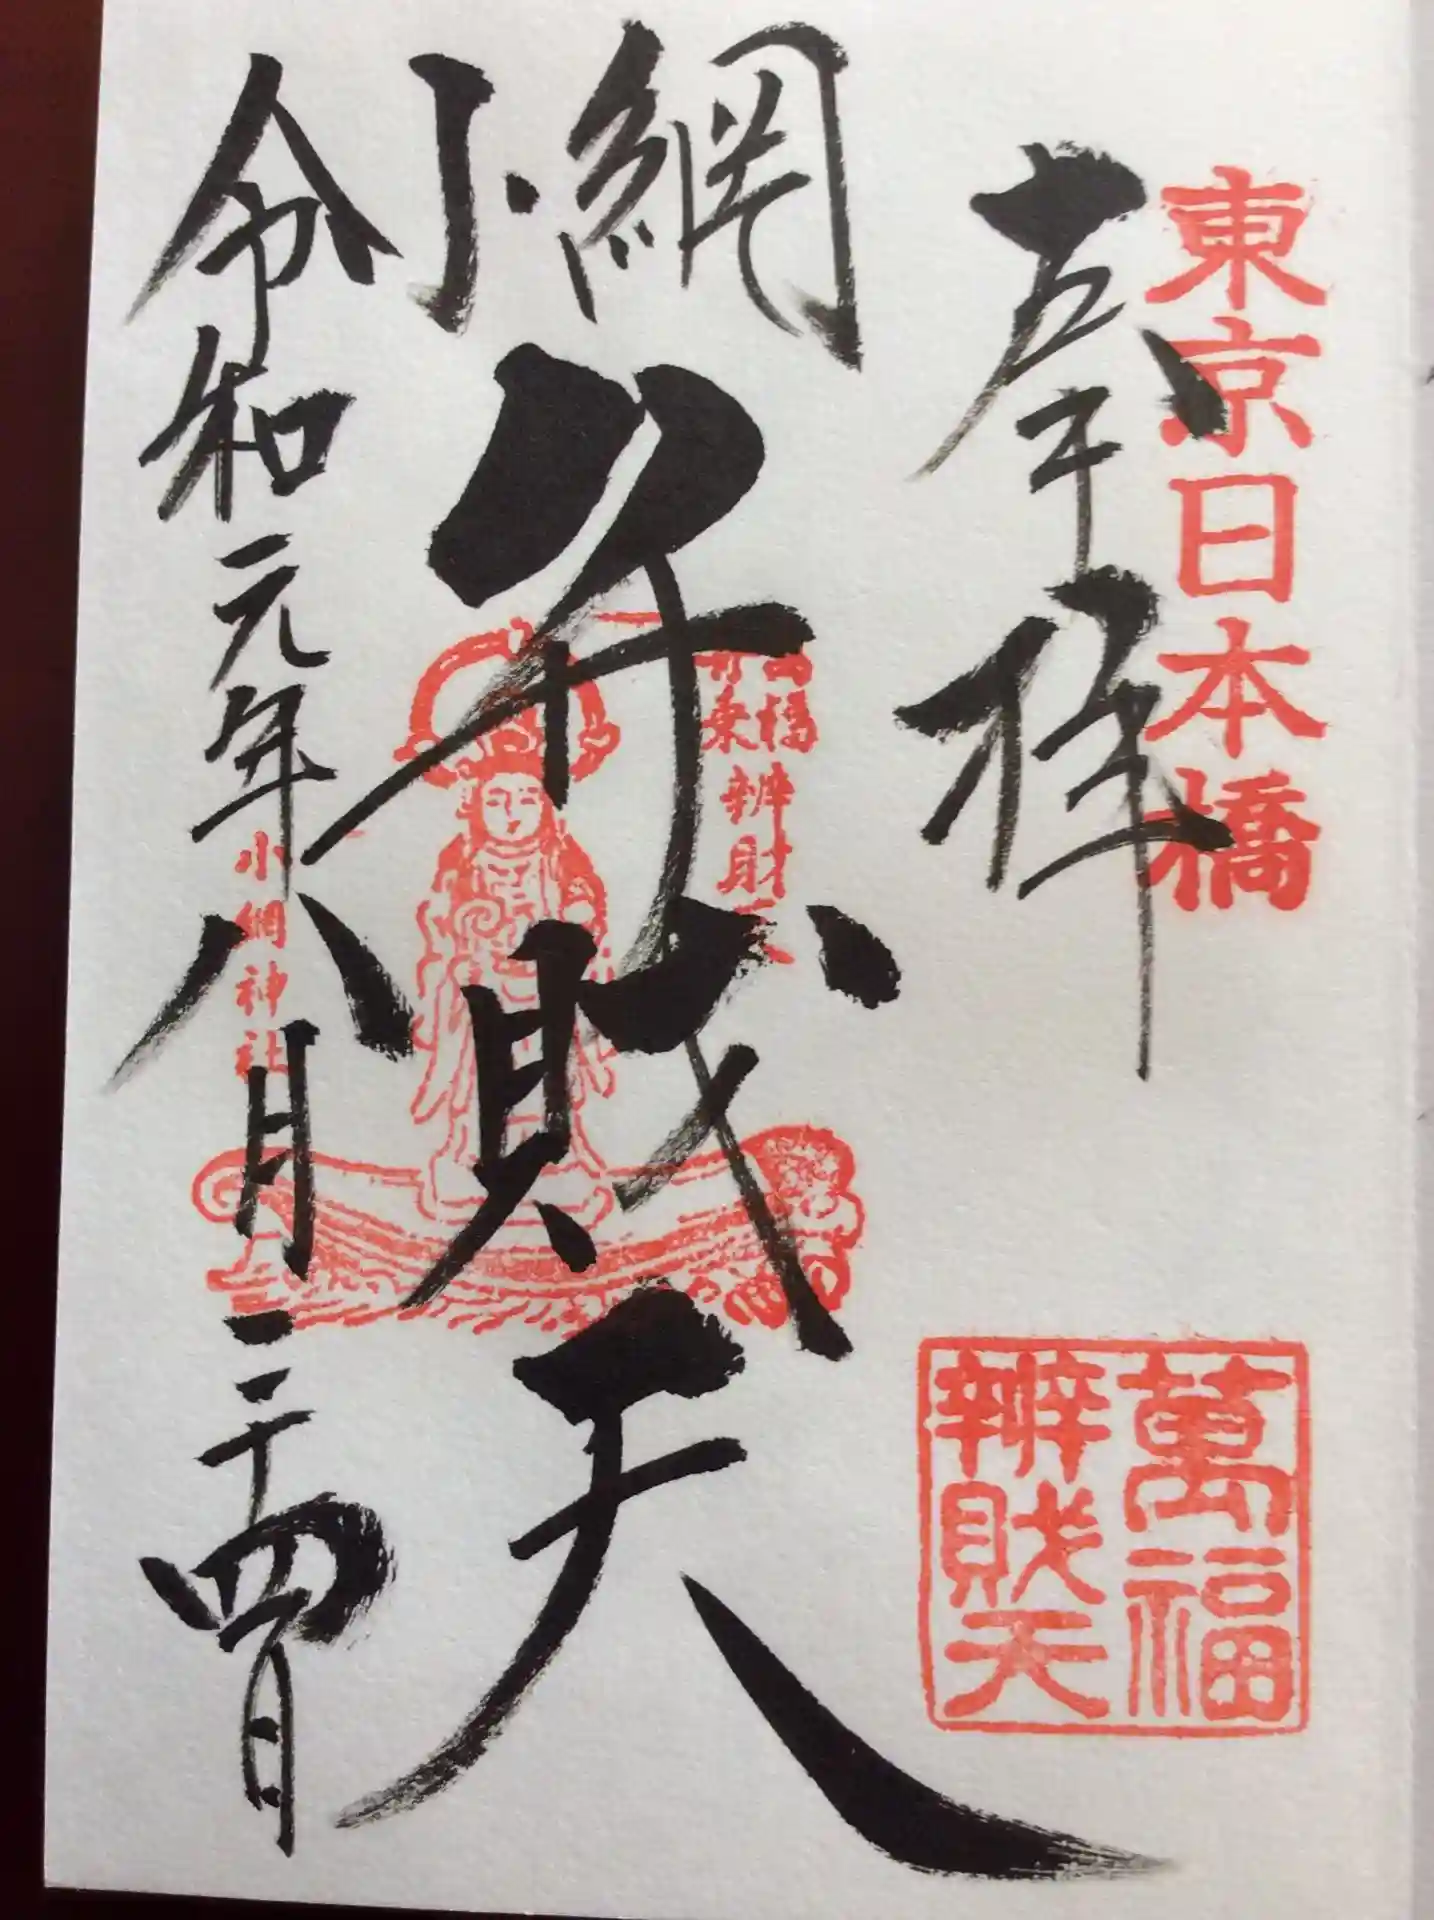 東京日本橋
奉拝
萬福
辨財天
小網
弁財天
萬福
舟乗
辨財天
小網神社
令和元年八月二十四日